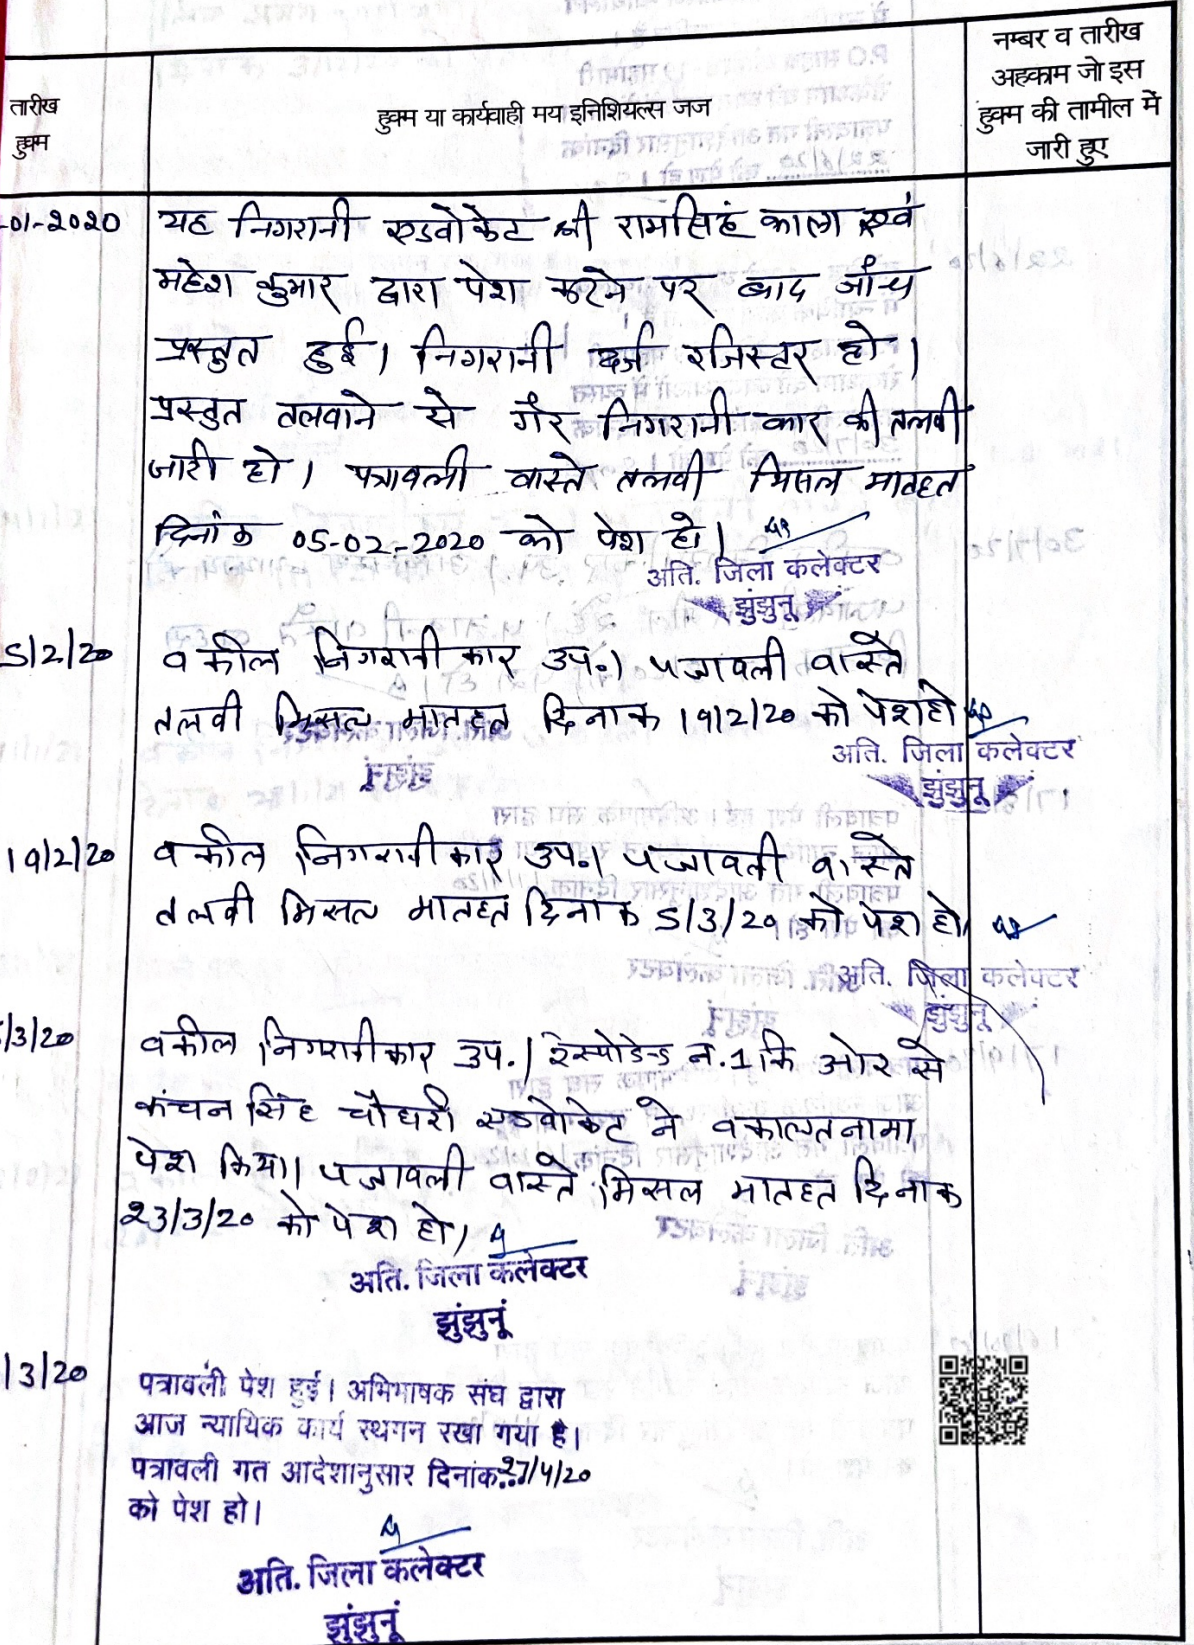 तारीख
हुक्म
हुक्म या कार्यवाही मय इनिशियल्स जज
नम्बर व तारीख
अहकाम जो इस
हुक्म की तामील में
जारी हुए
-01-2020
यह निगरानी एडवोकेट श्री रामसिहं काला एवं
महेश कुमार द्वारा पेश करने पर बाद जाँच
प्रस्तुत हुई। निगरानी दर्ज रजिस्टर हो।
प्रस्तुत तलवाने से गैर निगरानी कार की तलवी
जारी हो। पत्रावली वास्ते तलवी मिसल मातहत
दिनांक 05-02-2020 को पेश हो।
अति. जिला कलेक्टर
झुंझुनू
5/2/20
वकील निगरानीकार उप.। पत्रावली वास्ते
तलवी मिसल मातहत दिनाक 19/2/20 को पेश हो
अति. जिला कलेक्टर
झुंझुनू
19/2/20
वकील निगरानीकार उप.। पत्रावली वास्ते
तलवी मिसल मातहत दिनाक 5/3/20 को पेश हो।
अति. जिला कलेक्टर
झुंझुनू
/3/20
वकील निगरानीकार उप.। रेस्पोडेन्ड न.1 कि ओर से
कंचन सिंह चौधरी एडवोकेट ने वकालतनामा
पेश किया। पत्रावली वास्ते मिसल मातहत दिनाक
23/3/20 को पेश हो।
अति. जिला कलेक्टर
झुंझुनूं
/3/20
पत्रावली पेश हुई। अभिभाषक संघ द्वारा
आज न्यायिक कार्य स्थगन रखा गया है।
पत्रावली गत आदेशानुसार दिनांक..27/4/20
को पेश हो।
अति. जिला कलेक्टर
झुंझुनूं